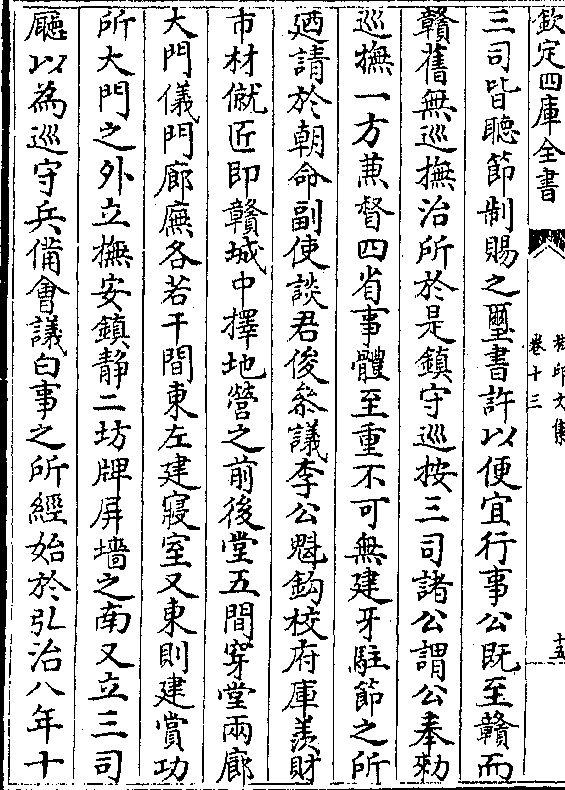 欽定四庫全書
卷十三
三司皆聽節制賜之璽書許以便宜行事公既至贛而
贛舊無巡撫治所於是鎮守巡按三司諸公謂公奉勑
巡撫一方兼督四省事體至重不可無建牙駐節之所
廼請於朝命副使談君俊叅議李公魁鈎校府庫羡財
市材僦匠即贛城中擇地營之前後堂五間穿堂兩廊
大門儀門廊廡各若干間東左建寢室又東則建賞功
所大門之外立撫安鎮静二坊牌屏墻之南又立三司
廳以為巡守兵備會議白事之所經始於弘治八年十